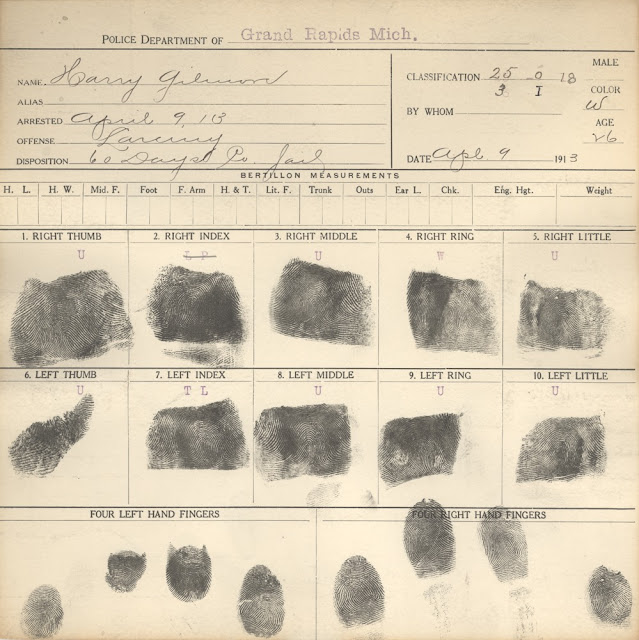 POLICE DEPARTMENT OF Grand Rapids Mich.
NAME Harry Gilmore
ALIAS
ARRESTED April 9, 13
OFFENSE Larceny
DISPOSITION 60 Days Co. Jail
CLASSIFICATION 25 0 18
3 I
BY WHOM
DATE Apl 9 1913
MALE
COLOR
W
AGE
26
BERTILLON MEASUREMENTS
H. L. H. W. Mid. F. Foot F. Arm H. & T. Lit. F. Trunk Outs Ear L. Chk. Eng. Hgt. Weight
1. RIGHT THUMB 2. RIGHT INDEX 3. RIGHT MIDDLE 4. RIGHT RING 5. RIGHT LITTLE
U L P U W U
6. LEFT THUMB 7. LEFT INDEX 8. LEFT MIDDLE 9. LEFT RING 10. LEFT LITTLE
U T L U U U
FOUR LEFT HAND FINGERS FOUR RIGHT HAND FINGERS